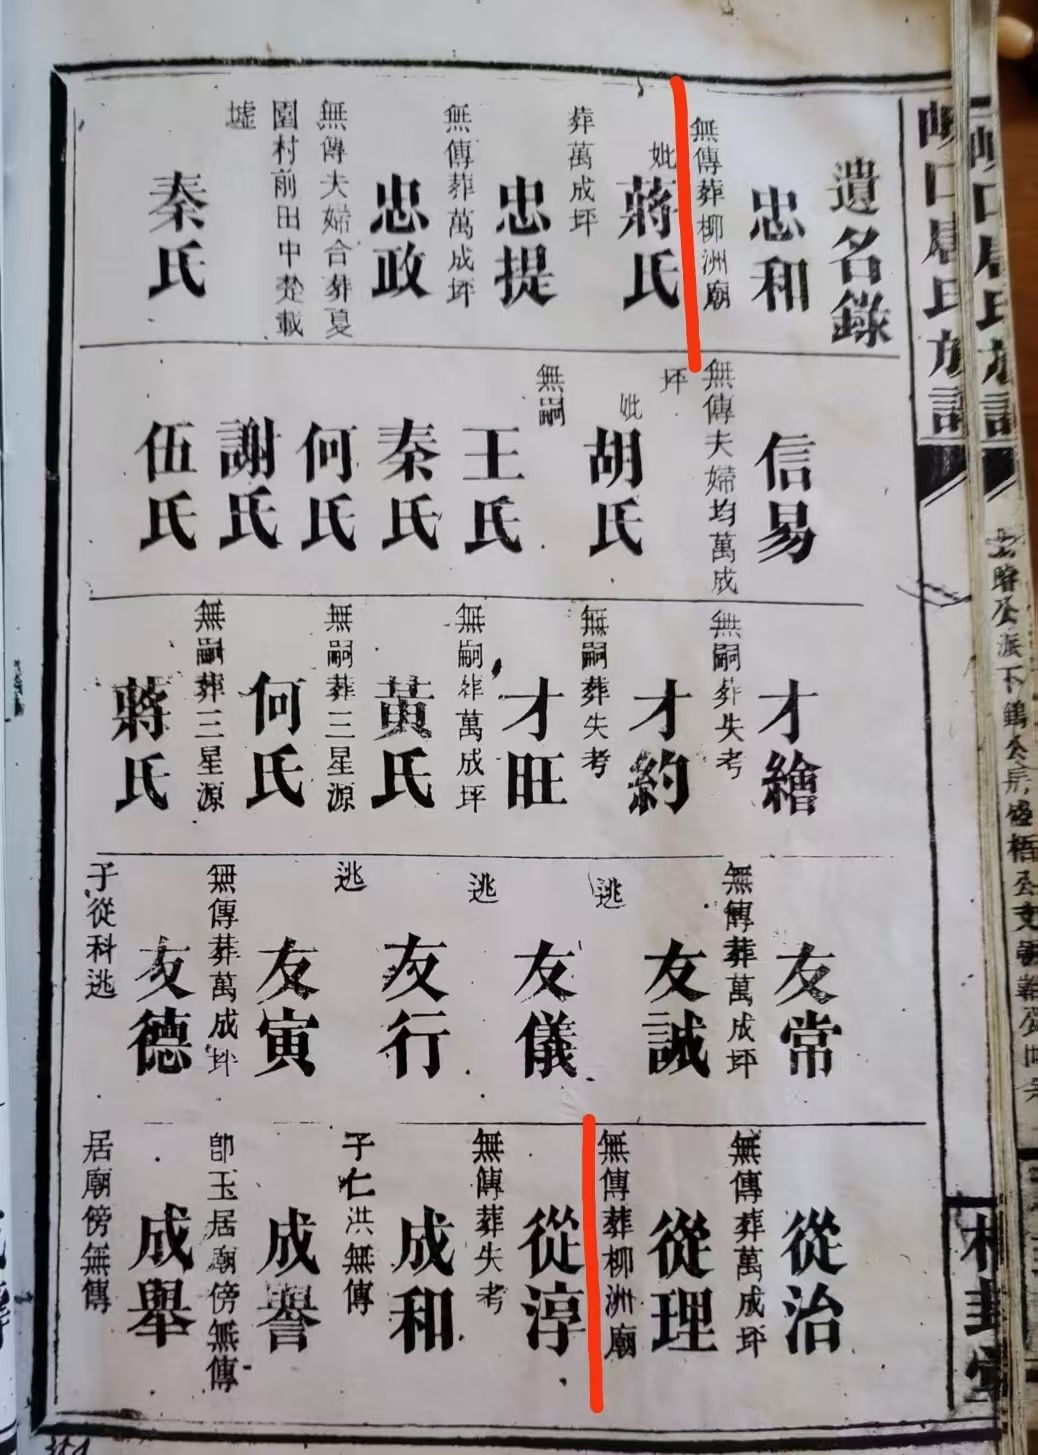 遺名錄
忠和
無傳葬柳洲廟
妣
蔣氏
葬萬成坪
忠提
無傳葬萬成坪
忠政
無傳夫婦合葬夏
園村前田中楚載
墟
秦氏
信易
無傳夫婦均萬成
坪
妣
胡氏
無嗣
王氏
秦氏
何氏
謝氏
伍氏
才繪
無嗣葬失考
才約
無嗣葬失考
才旺
無嗣葬萬成坪
黃氏
無嗣葬三星源
何氏
無嗣葬三星源
蔣氏
友常
無傳葬萬成坪
友誠
逃
友儀
逃
友行
逃
友寅
無傳葬萬成坪
友德
子從科逃
從治
無傳葬萬成坪
從理
無傳葬柳洲廟
從淳
無傳葬失考
成和
子仁洪無傳
成譽
卽玉居廟傍無傳
成舉
居廟傍無傳